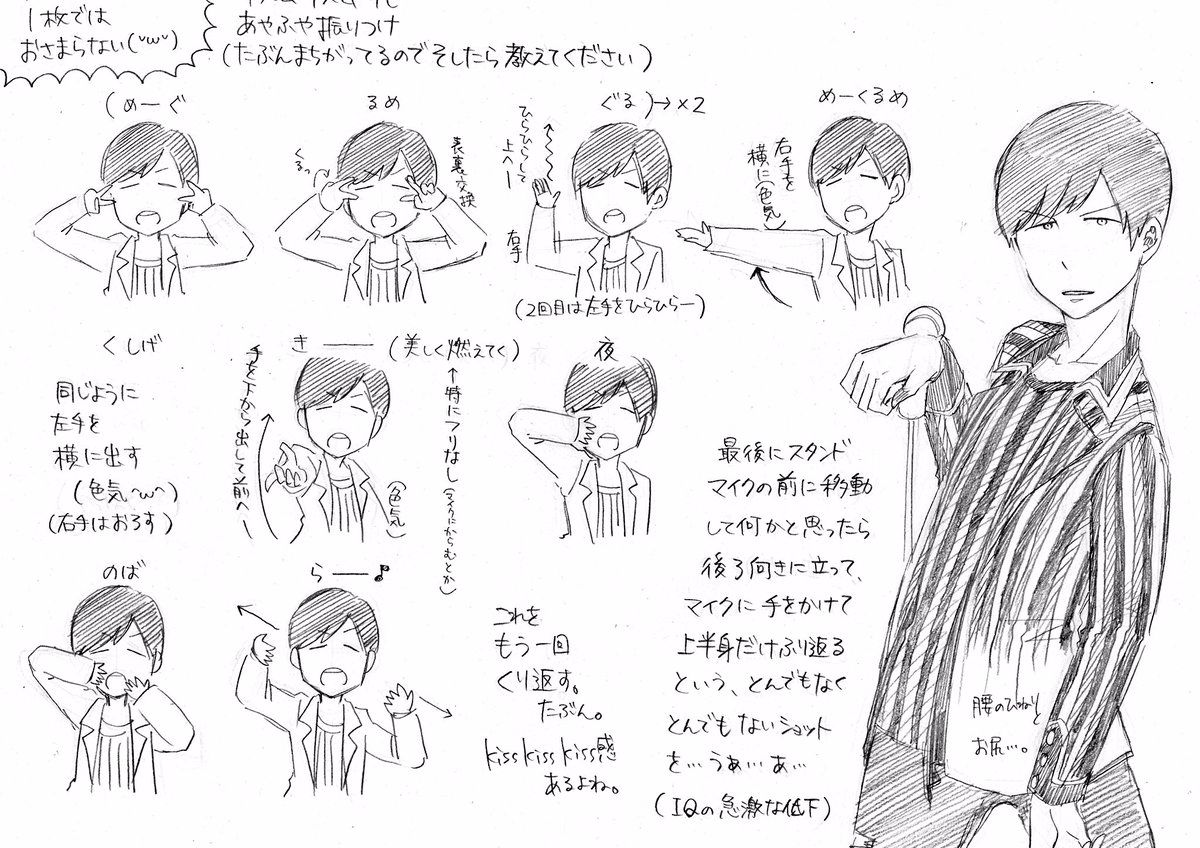 1枚では
おさまらない(˘ω˘)
あやふや振りつけ
(たぶんまちがってるのでそしたら教えてください)
(めーぐ
るめ
ぐる)→×2
めーくるめ
くるっ
表裏交換
ひらひらして
上へー
右手
(2回目は左手をひらひらー)
右手を
横に(色気)
くしげ
同じように
左手を
横に出す
(色気˘ω˘)
(右手はおろす)
き──(美しく燃えてく)
手を下から出して前へー
(色気)
↑特にフリなし(マイクにからむとか)
夜
のば
ら──♪
これを
もう一回
くり返す。
たぶん。
kiss kiss kiss感
あるよね。
最後にスタンド
マイクの前に移動
して何かと思ったら
後ろ向きに立って、
マイクに手をかけて
上半身だけふり返る
という、とんでもなく
とんでもないショット
を…うぁ…あ…
(IQの急激な低下)
腰のひねりと
お尻…。